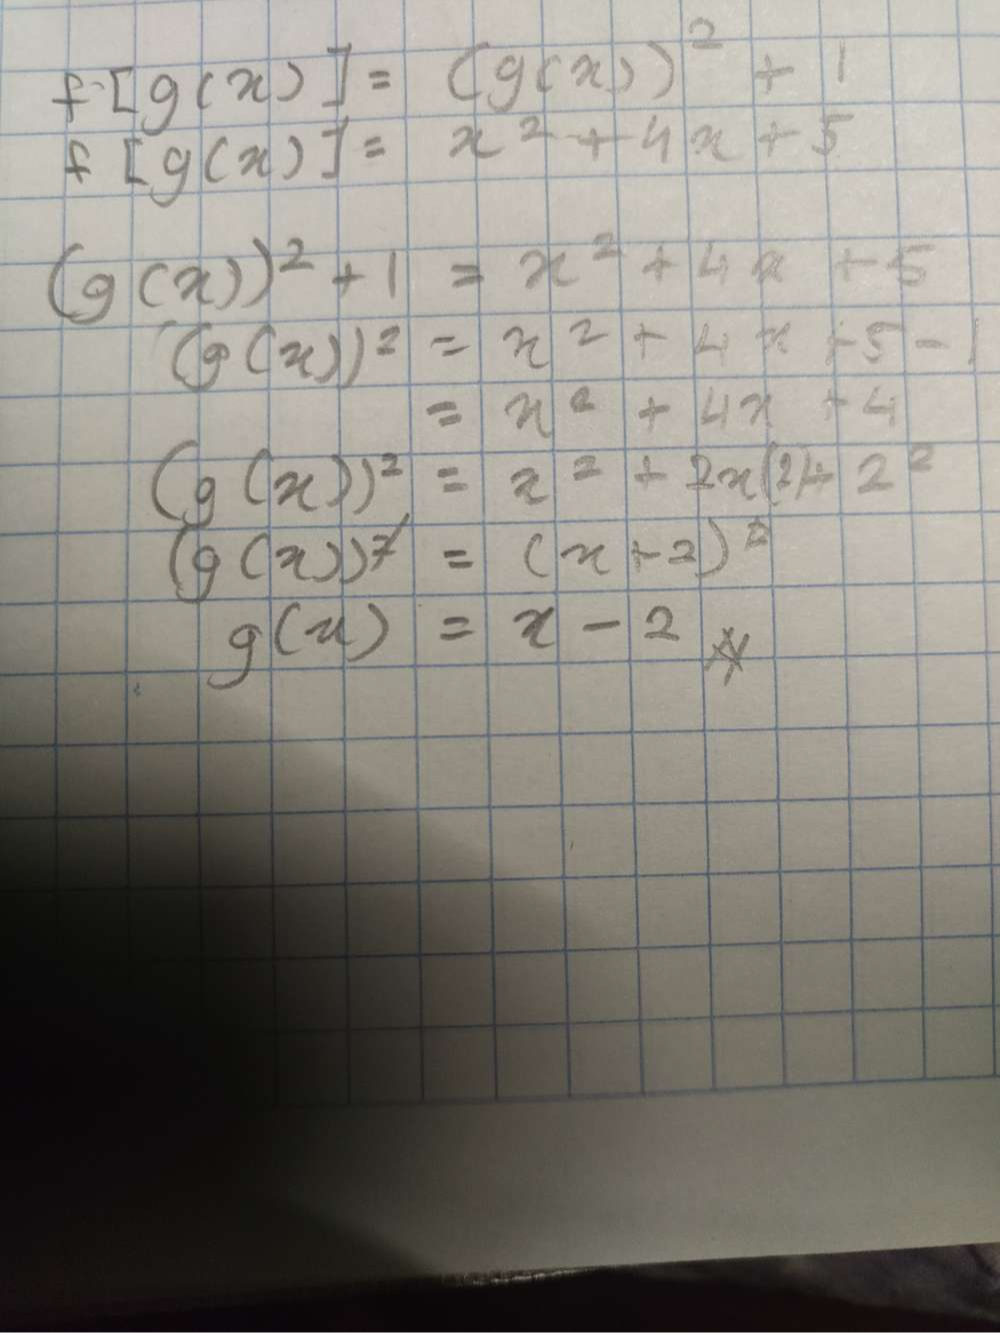 f[g(x)] = (g(x))² + 1
f[g(x)] = x² + 4x + 5
(g(x))² + 1 = x² + 4x + 5
(g(x))² = x² + 4x + 5 - 1
= x² + 4x + 4
(g(x))² = x² + 2x(2) + 2²
(g(x))² = (x+2)²
g(x) = x - 2